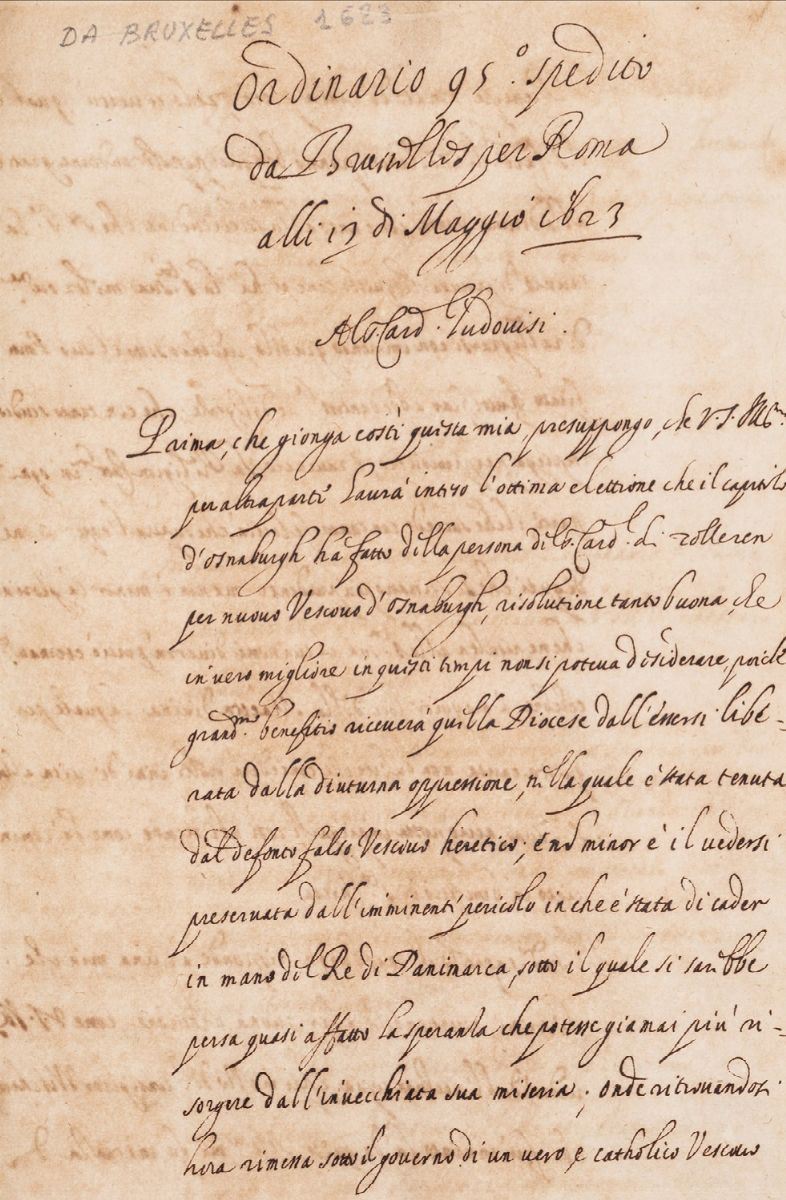 DA BRUXELLES 1623
Ordinario 95.º spedito
da Bruselles per Roma
alli 13 di Maggio 1623
Al S.r Card.l Ludovisi.
Prima, che gionga costì questa mia, presuppongo, che V. S. Ill.ma
per altra parte haurà inteso l'ottima elettione che il capitolo
d'osnaburgh hà fatto della persona del S.r Card.l di zolleren
per nuovo Vescovo d'osnaburgh, risolutione tanto buona, che
in vero migliore in questi tempi non si poteva desiderare, poiche
grand.mo benefitio riceverà quella Diocese dall'essersi libe-
rata dalla diuturna oppressione, nella quale è stata tenuta
dal defonto falso Vescovo heretico; e nō minor è il vedersi
preservata dall'imminente pericolo in che è stata di cader
in mano del Re di Danimarca, sotto il quale si sarebbe
persa quasi affatto la speranza che potesse giamai più ri-
sorgere dall'invecchiata sua miseria; onde ritrovandosi
hora rimessa sotto il governo di un vero, e catholico Vescovo